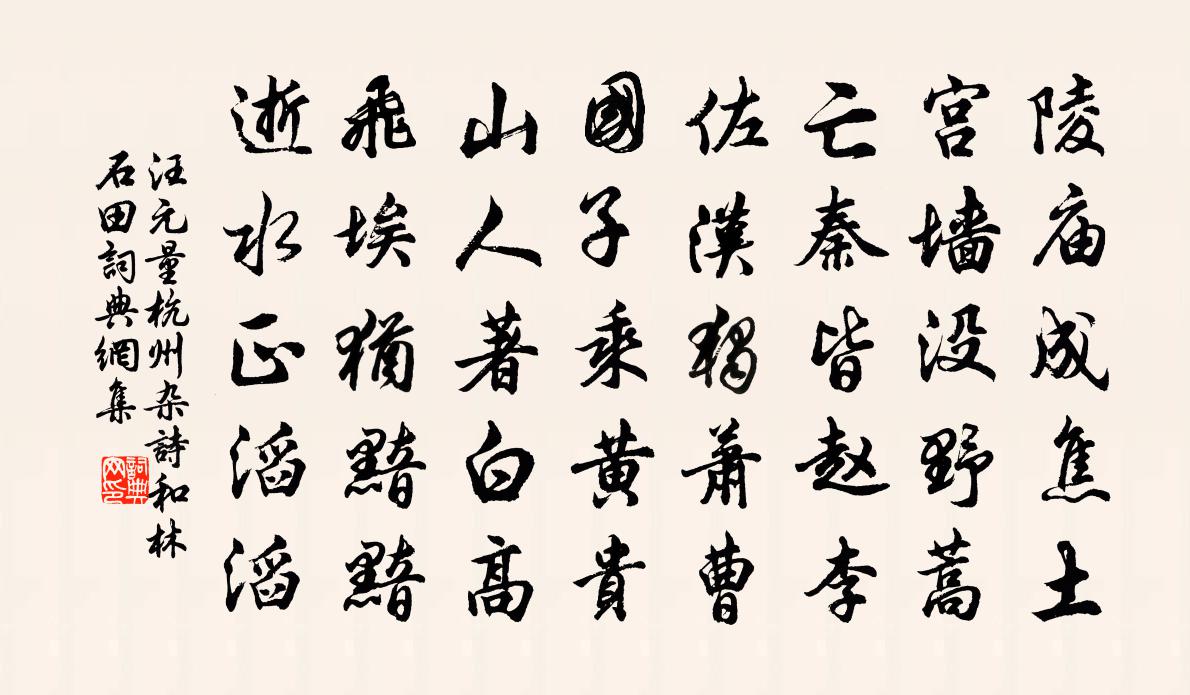 陵庙成焦土
宫墙没野蒿
亡秦皆赵李
佐漢独萧曹
國子乘黄貴
山人著白高
飛埃猶黯黯
逝水正滔滔
汪元量杭州杂詩和林
石田詞典網集
詞典